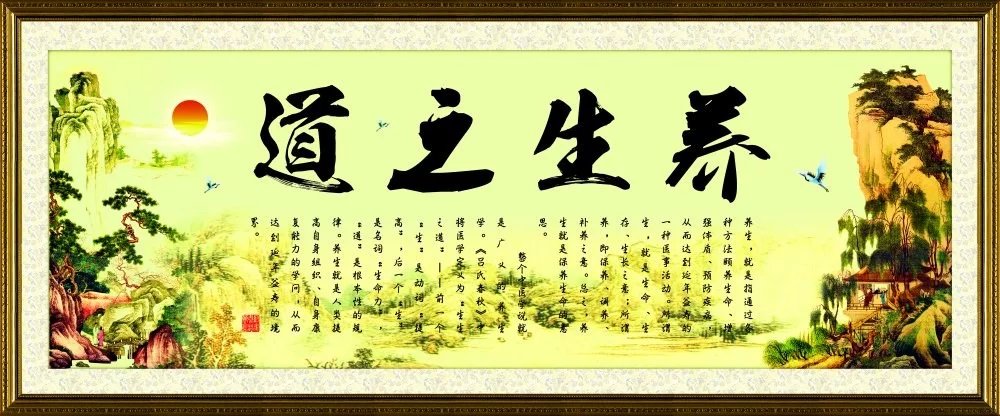 养生之道
养生,就是指通过各
种方法颐养生命、增
强体质、预防疾病,
从而达到延年益寿的
一种医事活动。所谓
生,就是生命、生
存、生长之意;所谓
养,即保养、调养、
补养之意。总之,养
生就是保养生命的意
思。
整个中医学说就
是广义的养生
学。《吕氏春秋》中
将医学定义为“生生
之道”——前一个
“生”是动词“提
高”,后一个“生”
是名词“生命力”,
“道”是根本性的规
律。养生就是人类提
高自身组织、自身康
复能力的学问,从而
达到延年益寿的境
界。